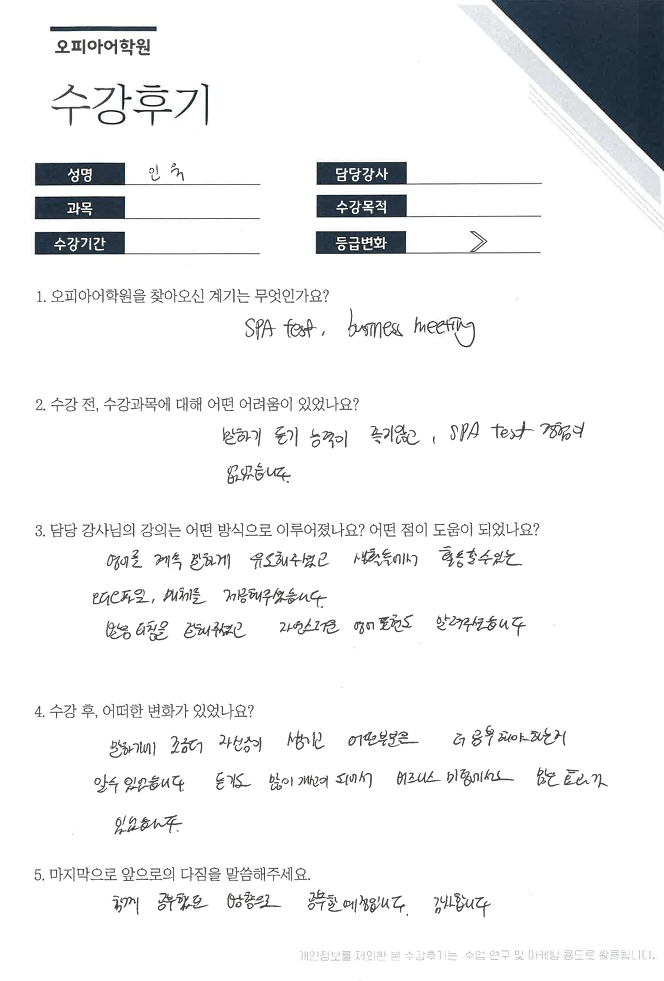 오피아어학원
수강후기
성명 인욱
담당강사
과목
수강목적
수강기간
등급변화
1. 오피아어학원을 찾아오신 계기는 무엇인가요?
SPA test, business meeting
2. 수강 전, 수강과목에 대해 어떤 어려움이 있었나요?
말하기 듣기 능력이 좋지않고, SPA test 경험이
없었습니다.
3. 담당 강사님의 강의는 어떤 방식으로 이루어졌나요? 어떤 점이 도움이 되었나요?
영어를 계속 말하게 유도해주셨고 생활속에서 활용할수있는
오디오파일, 매체를 제공해주셨습니다.
발음 티칭을 잘해주셨고 자연스러운 영어 표현도 알려주셨습니다
4. 수강 후, 어떠한 변화가 있었나요?
말하기에 조금더 자신감이 생기고 어떤부분은 더 공부해야 하는지
알수 있었습니다 듣기도 많이 개선이 되어서 비즈니스 미팅에서도 많은 효과가
있었습니다.
5. 마지막으로 앞으로의 다짐을 말씀해주세요.
함께 공부했던 방향으로 공부할 예정입니다. 감사합니다
개인정보를 제외한 본 수강후기는 수업 연구 및 마케팅 용도로 활용됩니다.